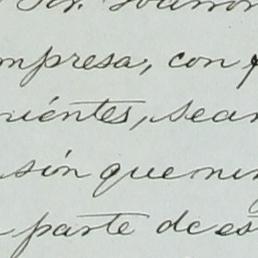 mpresa, con
nientes, sean
sin que nin
parte de es